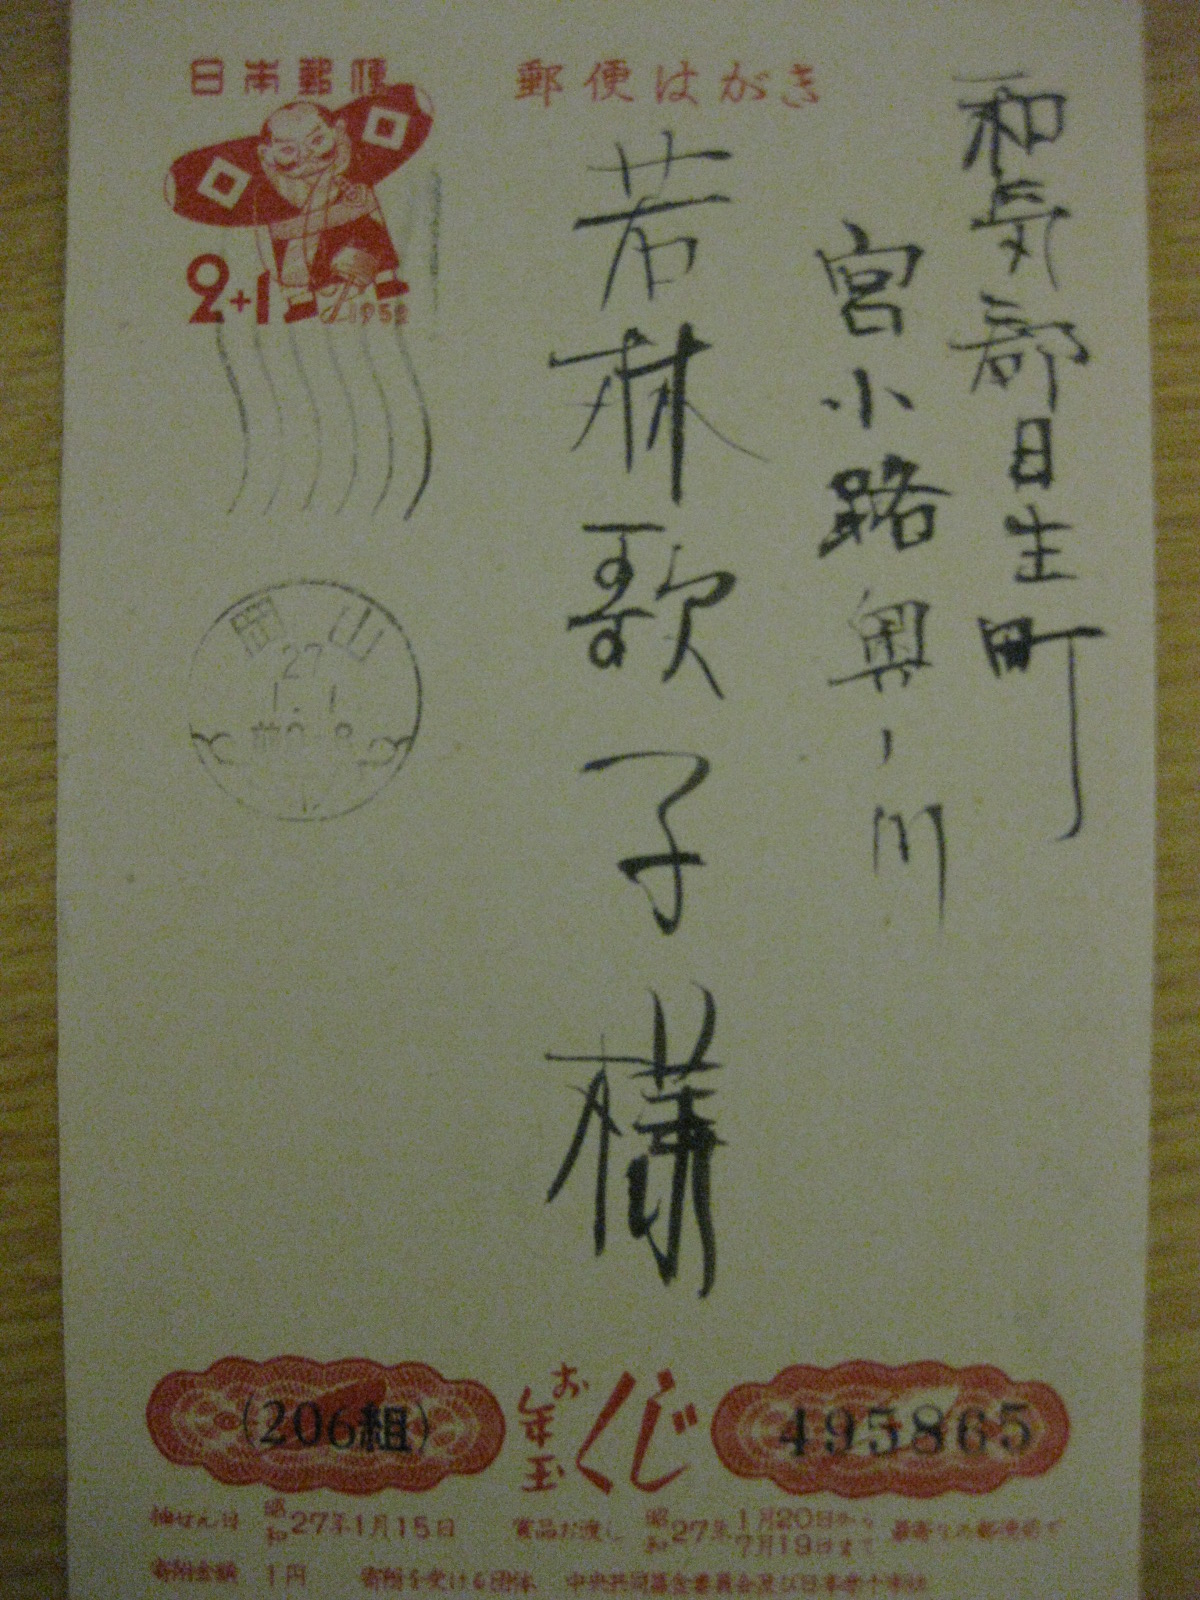 日本郵便
郵便はがき
2+1
1952
和気郡日生町
宮小路奥ノ川
若林歌子様
岡山
27
1. 1
前0-8
(206組)
お年玉くじ
495865
抽せん日 昭和27年1月15日 賞品お渡し 昭和27年1月20日から7月19日まで 最寄りの郵便局で
寄附金額 1円 寄附を受ける団体 中央共同募金委員会及び日本赤十字社